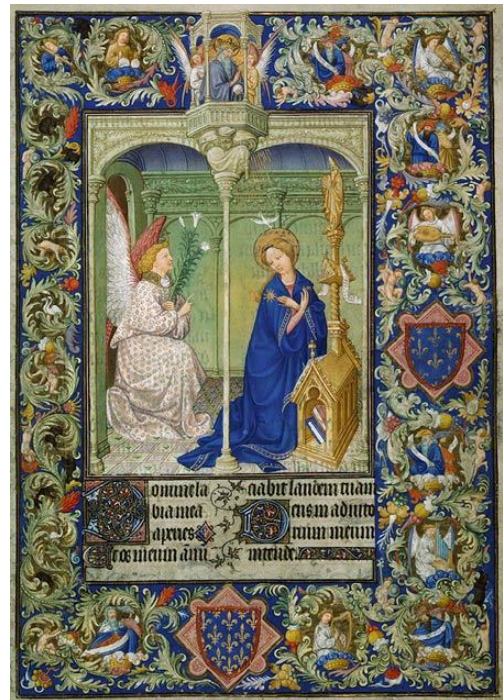 Domine la
bia mea
aperies
Et os meum ānu
ciabit laudem tuam
Deus in adiuto
rium meum
intende